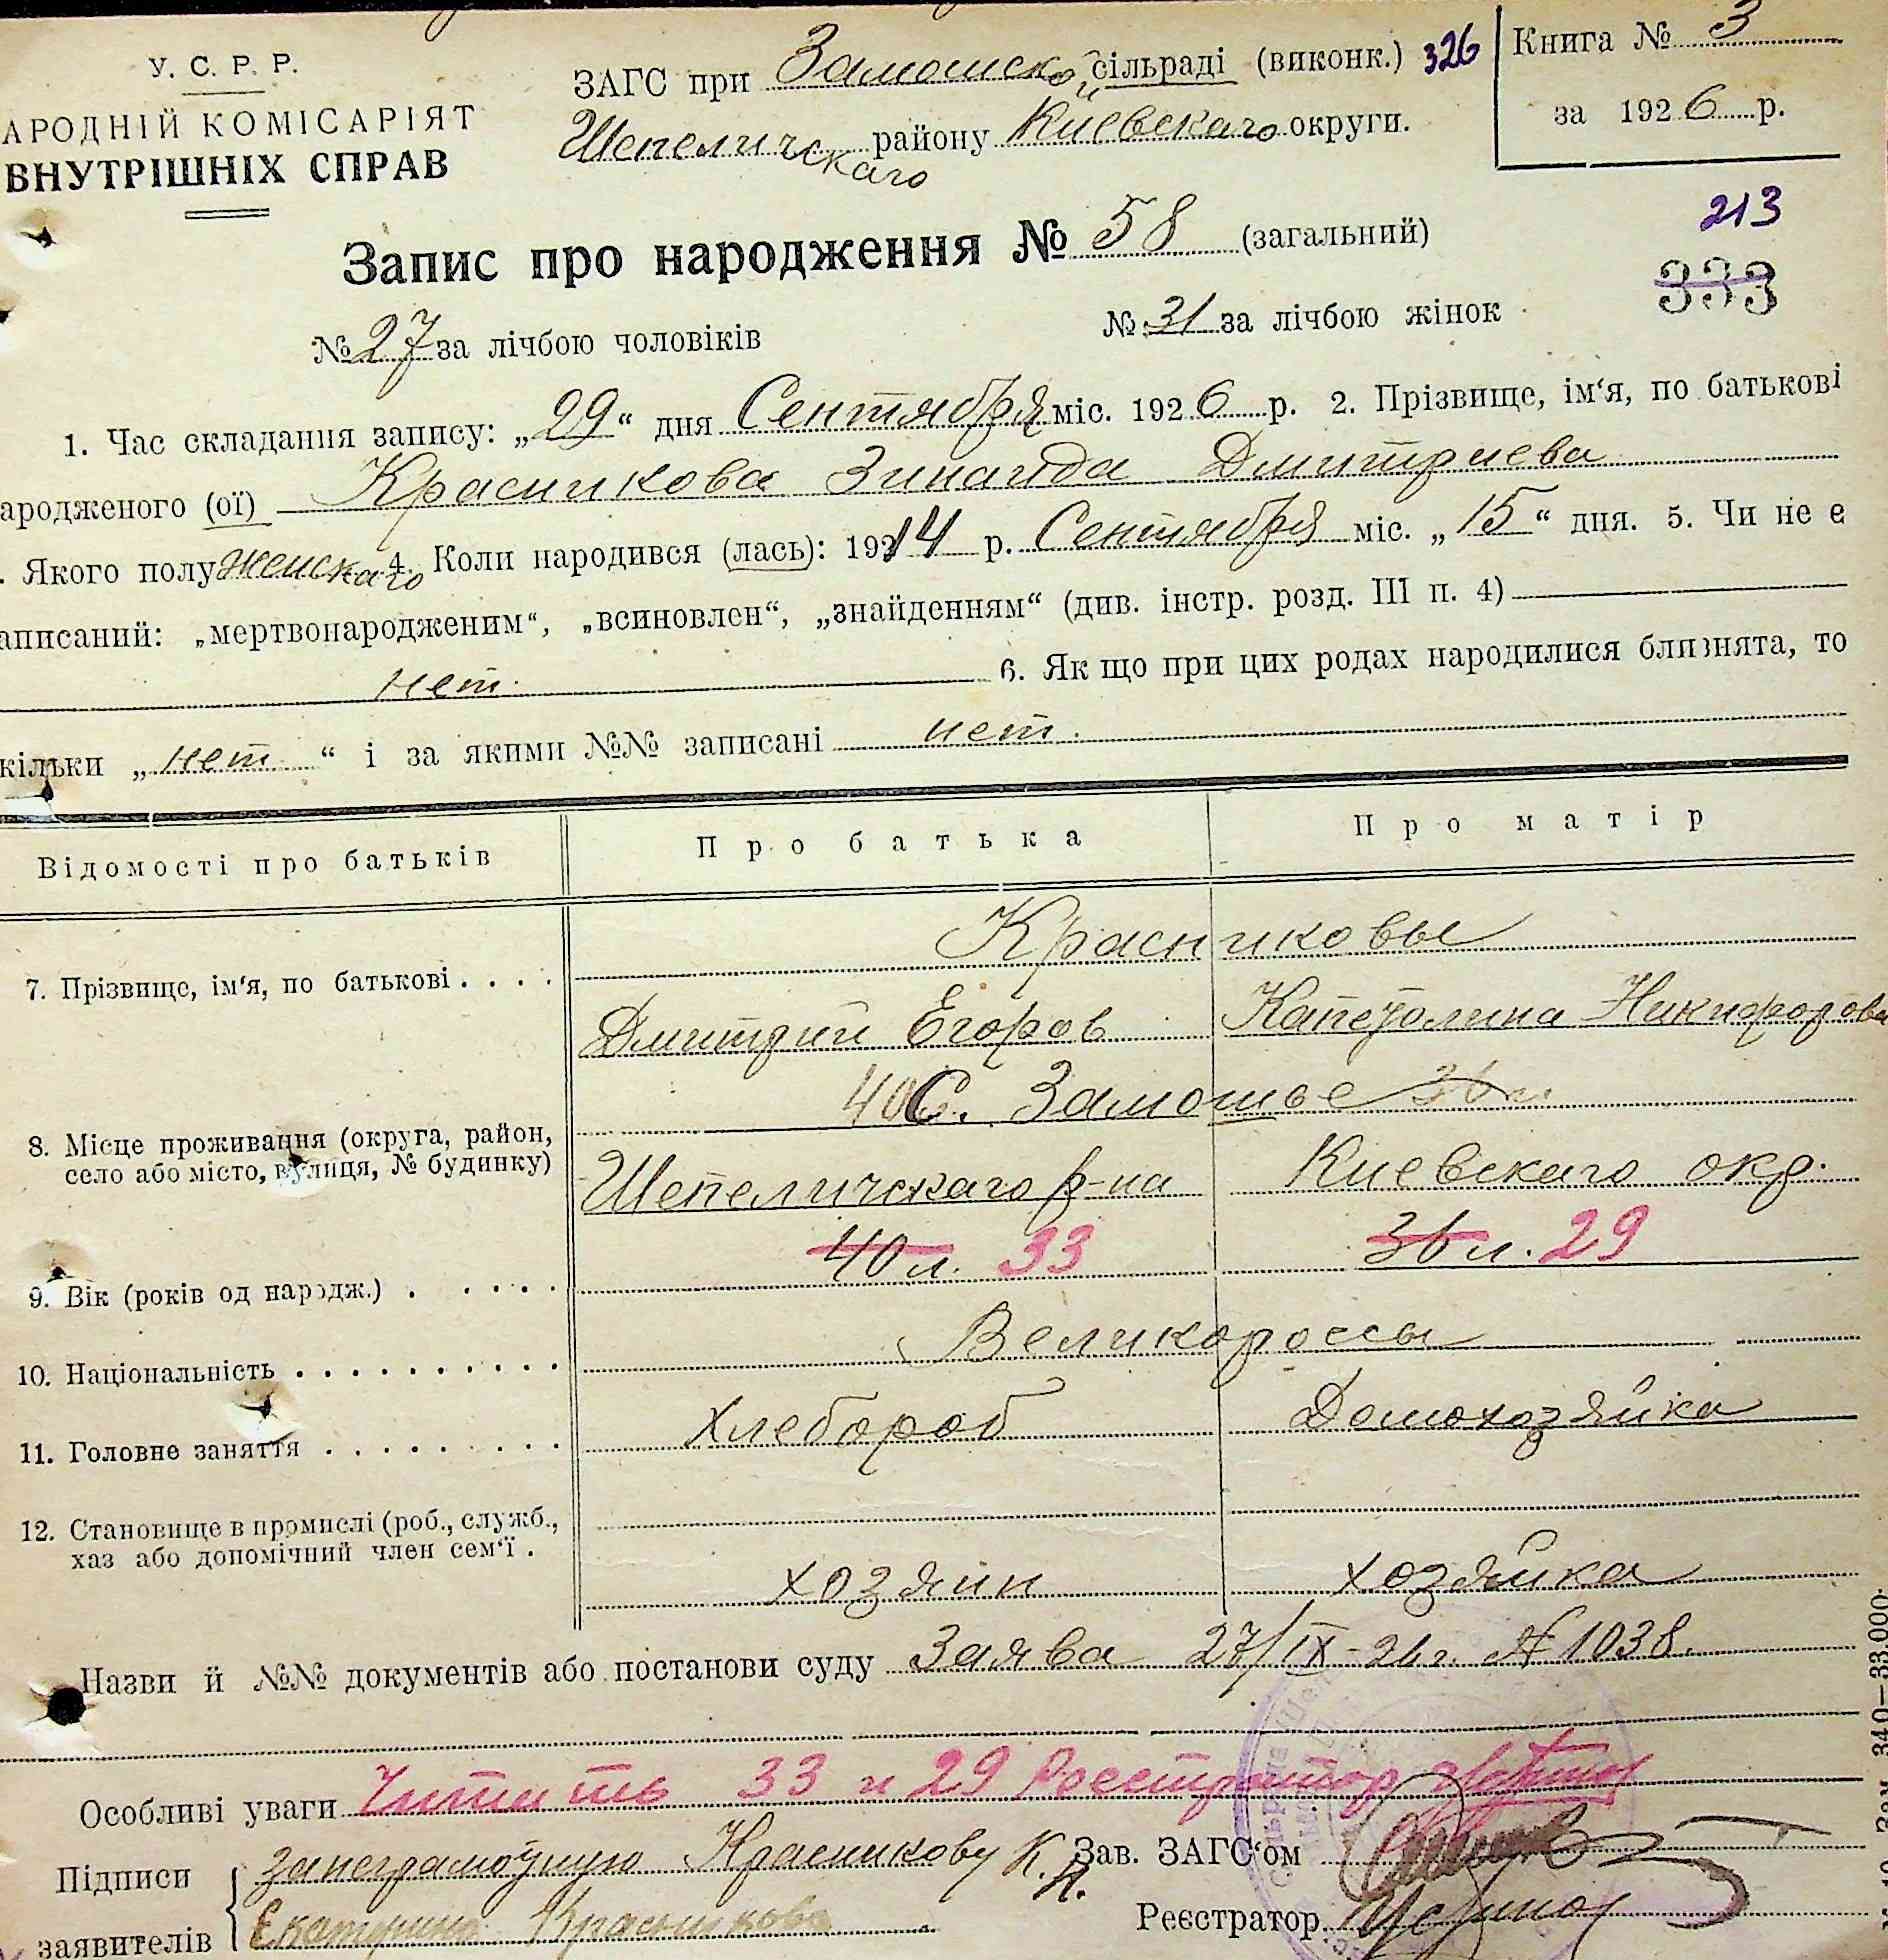 У. С. Р. Р.
АРОДНІЙ КОМІСАРІЯТ
ВНУТРІШНІХ СПРАВ
ЗАГС при Замошской сільраді (виконк.) 326
Шепеличскаго району Киевскаго округи.
Книга № 3
за 1926 р.
213
333
Запис про народження № 58 (загальний)
№ 27 за лічбою чоловіків № 31 за лічбою жінок
1. Час складання запису: „29“ дня Сентября міс. 1926 р. 2. Прізвище, ім‘я, по батькові
ародженого (ої) Красникова Зинаида Дмитриева
. Якого полу женскаго 4. Коли народився (лась): 1914 р. Сентября міс. „15“ дня. 5. Чи не є
аписаний: „мертвонародженим“, „всиновлен“, „знайденням“ (див. інстр. розд. III п. 4)
нет. 6. Як що при цих родах народилися близнята, то
кільки „нет“ і за якими №№ записані нет.
Відомості про батьків Про батька Про матір
Красниковы
7. Прізвище, ім‘я, по батькові . . . .
Дмитрий Егоров Капетолина Никифорова
40 С. Замошье 36 л.
8. Місце проживання (округа, район,
село або місто, вулиця, № будинку)
Шепеличскаго р-на Киевскаго окр.
40 л. 33 36 л. 29
9. Вік (років од народж.) . . . . .
Великороссы
10. Національність . . . . . . . . . .
Хлебороб Домохозяйка
11. Головне заняття . . . . . . . . .
12. Становище в промислі (роб., служб.,
хаз або допомічний член сем‘ї .
хозяин хозяйка
Назви й №№ документів або постанови суду Заява 27/IX-26 г. № 1038.
Особливі уваги Читать 33 и 29 Реестратор
Підписи за неграмотную Красникову К. Н. Зав. ЗАГС‘ом
заявителів Екатерина Красникова Реєстратор
Зам. 340—33.000.